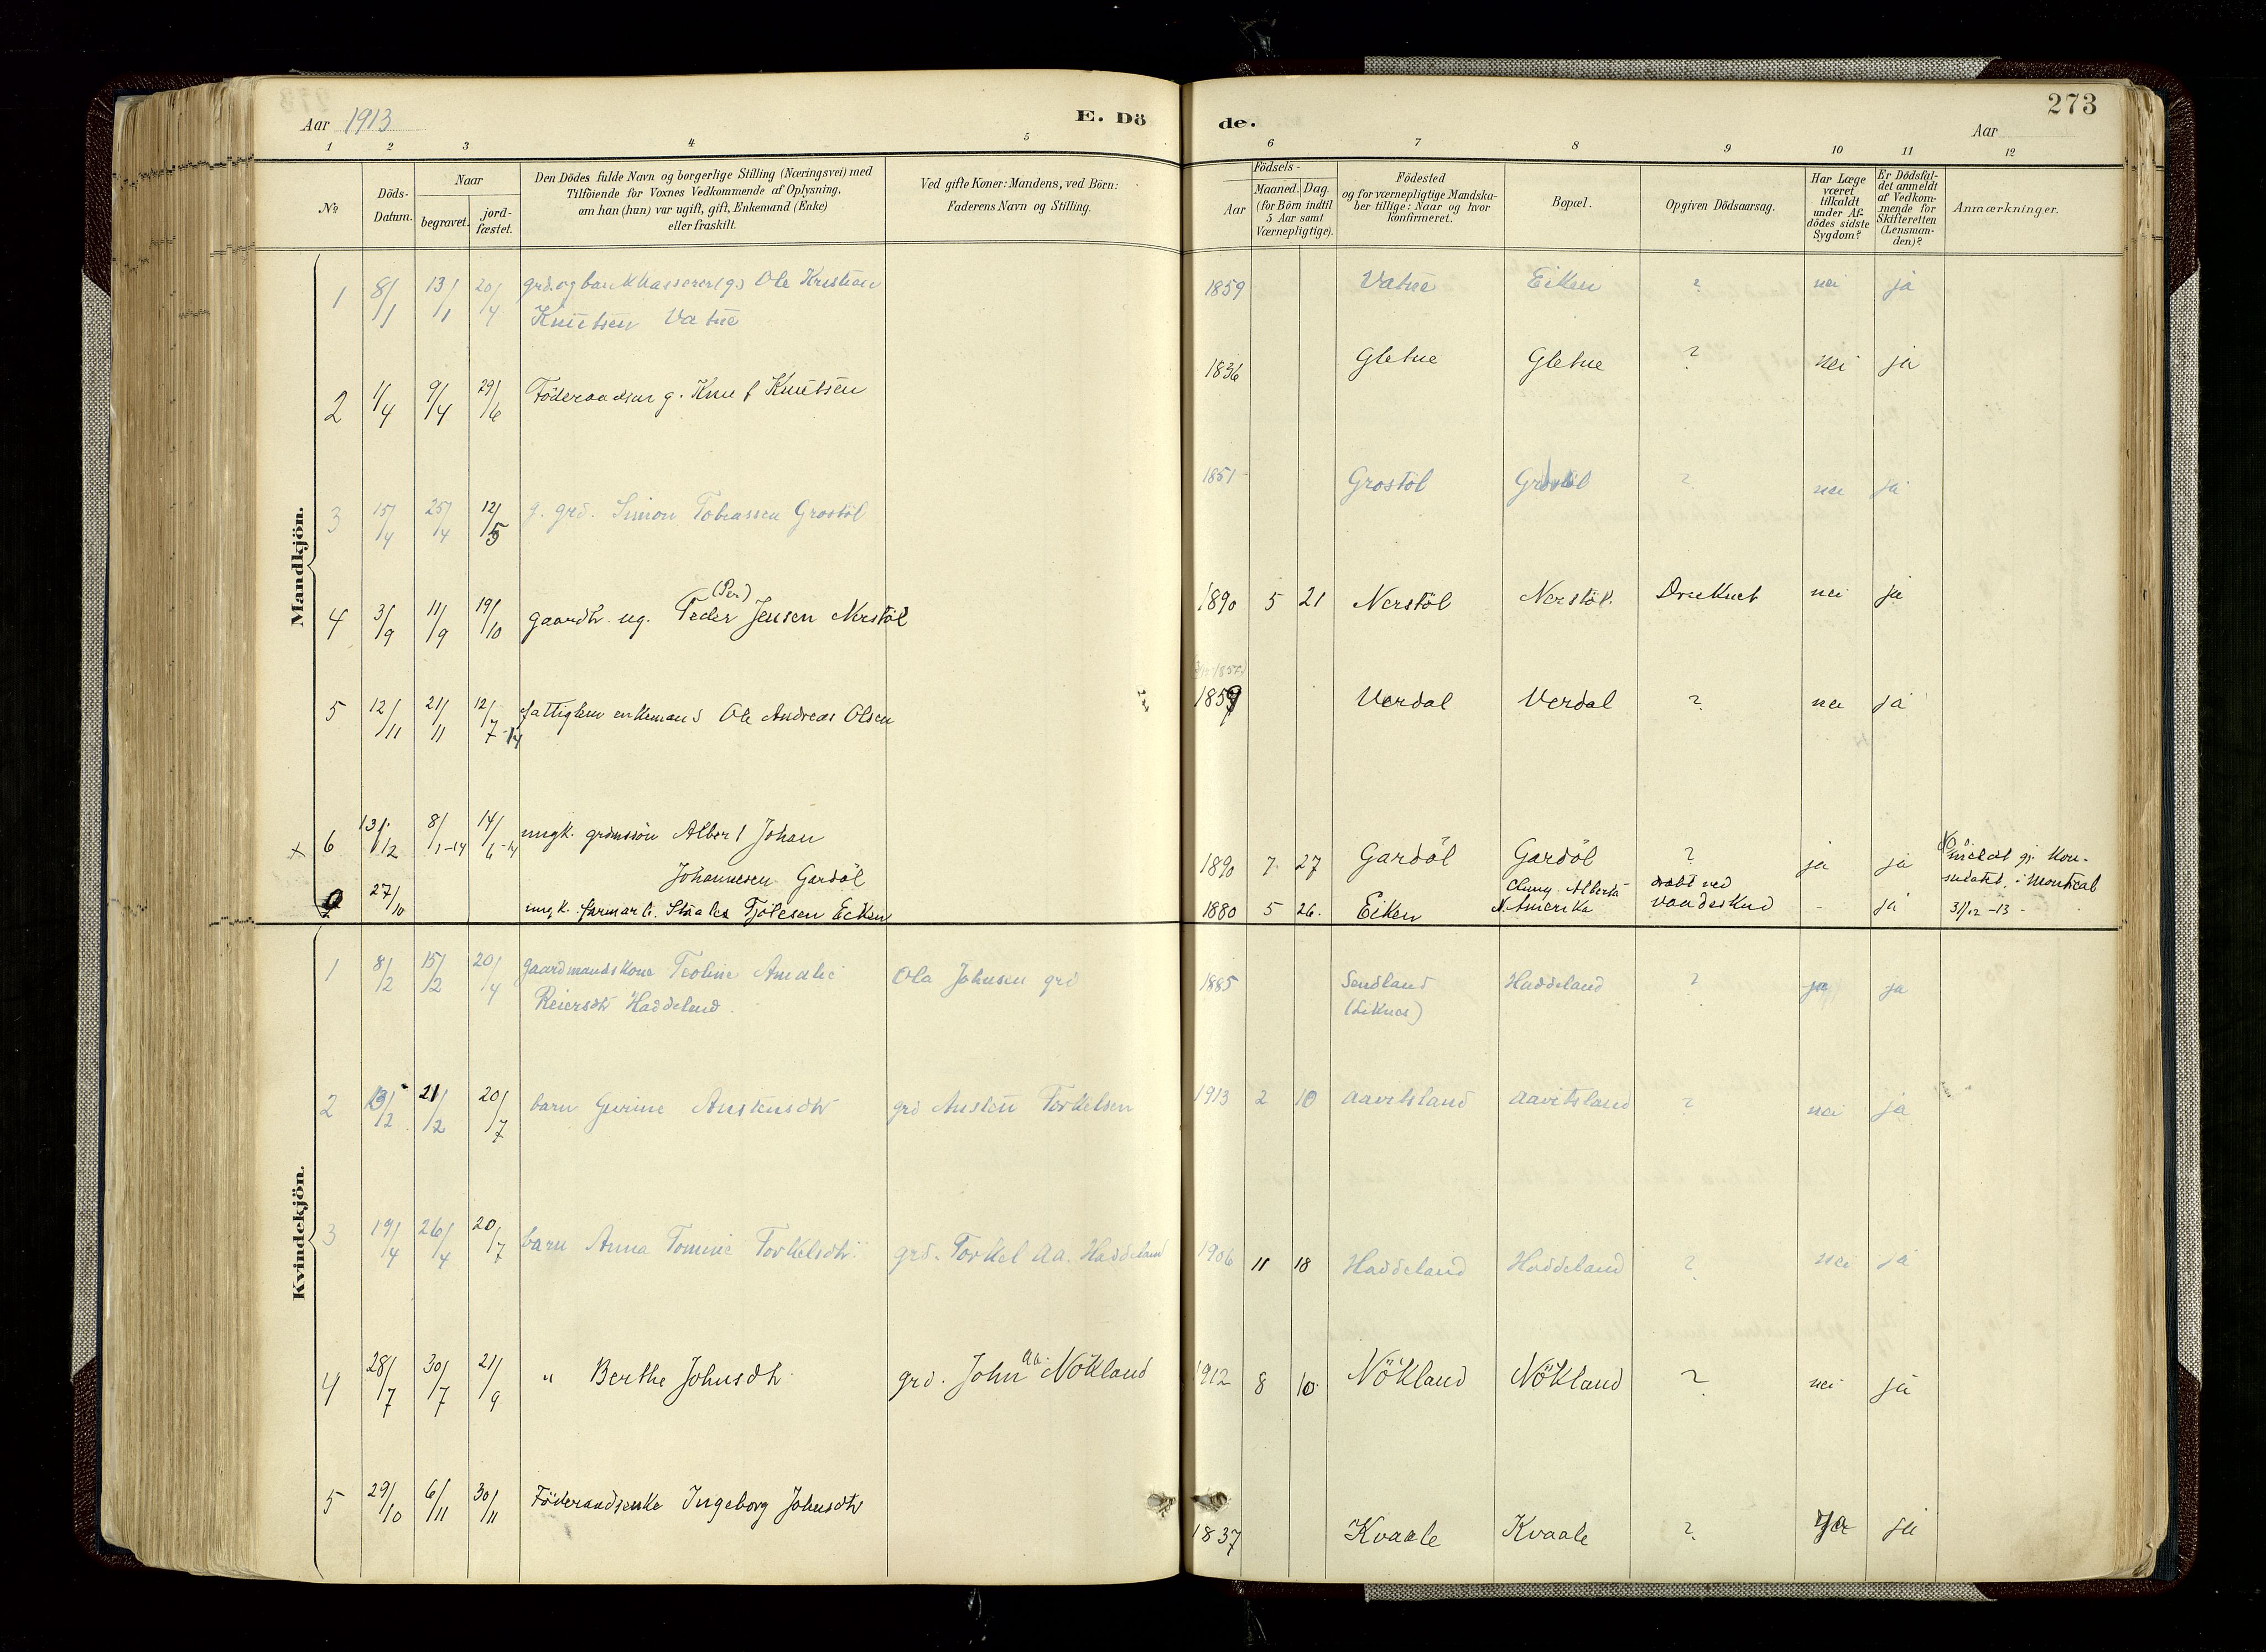 273
Aar 1913
E. Dö
de.
Aar
1 2 3 4 5 6 7 8 9 10 11 12
No
Döds-Datum.
Naar
begravet.
jord-fæstet.
Den Dödes fulde Navn og borgerlige Stilling (Næringsvei) med
Tilföiende for Voxnes Vedkommende af Oplysning,
om han (hun) var ugift, gift, Enkemand (Enke)
eller fraskilt.
Ved gifte Koner: Mandens, ved Börn:
Faderens Navn og Stilling.
Födsels-
Aar
Maaned. Dag.
(for Börn indtil
5 Aar samt
Værnepligtige).
Födested
og for værnepligtige Mandska-
ber tillige: Naar og hvor
konfirmeret.
Bopæl.
Opgiven Dödsaarsag.
Har Læge
været
tilkaldt
under Af-
dödes sidste
Sygdom?
Er Dödsfal-
det anmeldt
af Vedkom-
mende for
Skifteretten
(Lensman-
den)?
Anmærkninger.
Mandkjön.
1 8/1 13/1 20/4 grd. og bankkasserer (g.) Ole Kristian 1859 Vatne Eiken ? nei ja
Knutsen Vatne
2 1/4 9/4 29/6 Föderaadsm g. Knut Knutsen 1836 Gletne Gletne ? nei ja
3 15/4 25/4 12/5 g. grd. Simon Tobiassen Grostöl 1851 Grostöl Grostöl ? nei ja
(Per)
4 3/9 11/9 19/10 gaardbr. ug. Peder Jensen Nerstöl 1890 5 21 Nerstöl Nerstöl. Druknet nei ja
5 12/11 21/11 12/7-14 fattiglem enkemand Ole Andreas Olsen 1859 Verdal Verdal ? nei ja
x 6 13/12 8/1-14 14/6-14 ungk. grdmssön Albert Johan
Johannesen Gardöl 1890 7 27 Gardöl Gardöl ? ja ja
27/10 ungk. farmarb. Staales Tjölesen Eiken 1880 5 26. Eiken Cluny Alberta N. Amerika drabt ved vaadeskud - ja meldt gj. Kon-
sulatet i Montreal
31/12-13-
Kvindekjön.
1 8/2 15/2 20/4 gaardmandskone Teoline Amalie Ola Johnsen grd 1885 Sandland Haddeland ? ja ja
Reiersdtr Haddeland. (Liknes)
2 13/2 21/2 20/7 barn Gurine Austensdtr grd Austen Torkelsen 1913 2 10 Aavitsland Aavitsland ? nei ja
3 19/4 26/4 20/7 barn Anna Tomine Torkelsdtr. grd. Torkel Aa. Haddeland 1906 11 18 Haddeland Haddeland ? nei ja
4 28/7 30/7 21/9 " Berthe Johnsdtr. grd. John Aa. Nökland 1912 8 10 Nökland Nökland ? nei ja
5 29/10 6/11 30/11 Föderaadsenke Ingeborg Johnsdtr 1837 Kvaale Kvaale ? ja ja